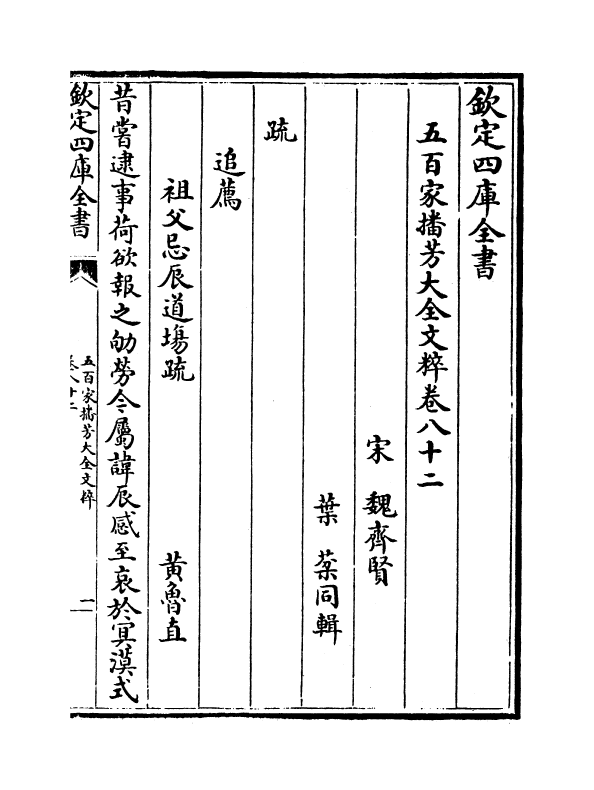 欽定四庫全書
五百家播芳大全文粹卷八十二
宋　魏齊賢
葉　棻同輯
疏
追薦
祖父忌辰道場疏　黃魯直
昔嘗逮事荷欲報之劬勞今屬諱辰感至哀於㝠漠式
欽定四庫全書
五百家播芳大全文粹
卷八十二
一